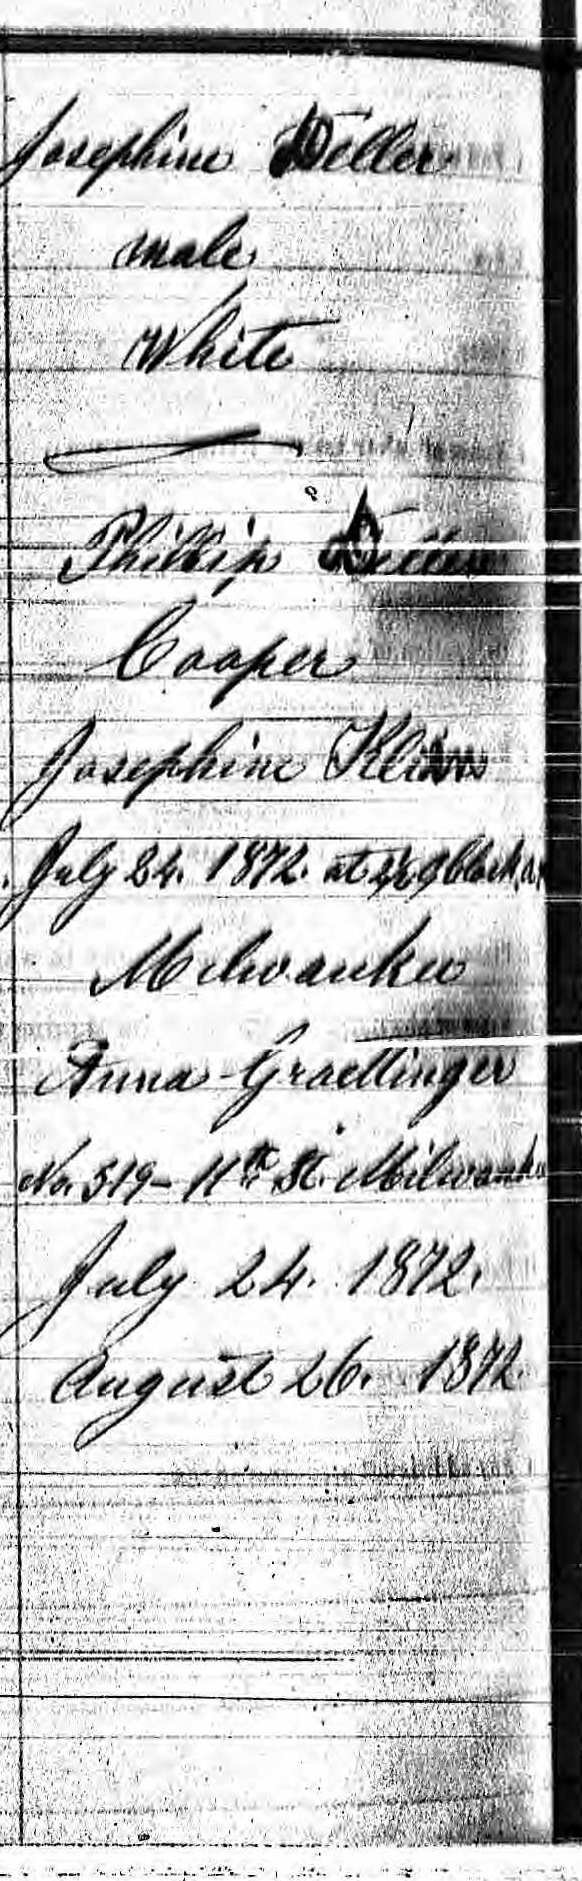 Josephine Deller
male
White
Phillip Deller
Cooper
Josephine
July 24. 1872. at
Milwaukee
Anna Graettinger
No. 519 - 11th St. Milwaukee
July 24. 1872.
August 26. 1872